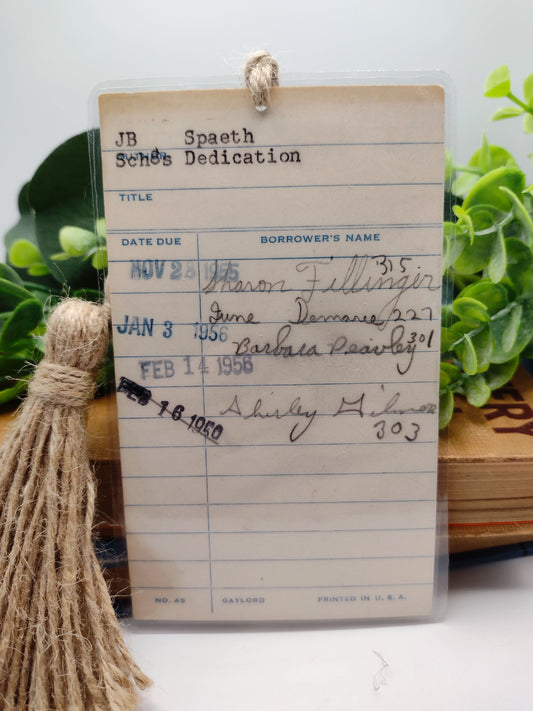 JB Spaeth
Sch8s Dedication
TITLE
DATE DUE BORROWER'S NAME
NOV 28 1955 Sharon Fillinger 315
June Demaree 227
JAN 3 1956 Barbara Peavley 301
FEB 14 1956
FEB 16 1960 Shirley Gilmor
303
NO. 45 GAYLORD PRINTED IN U.S.A.
ERY